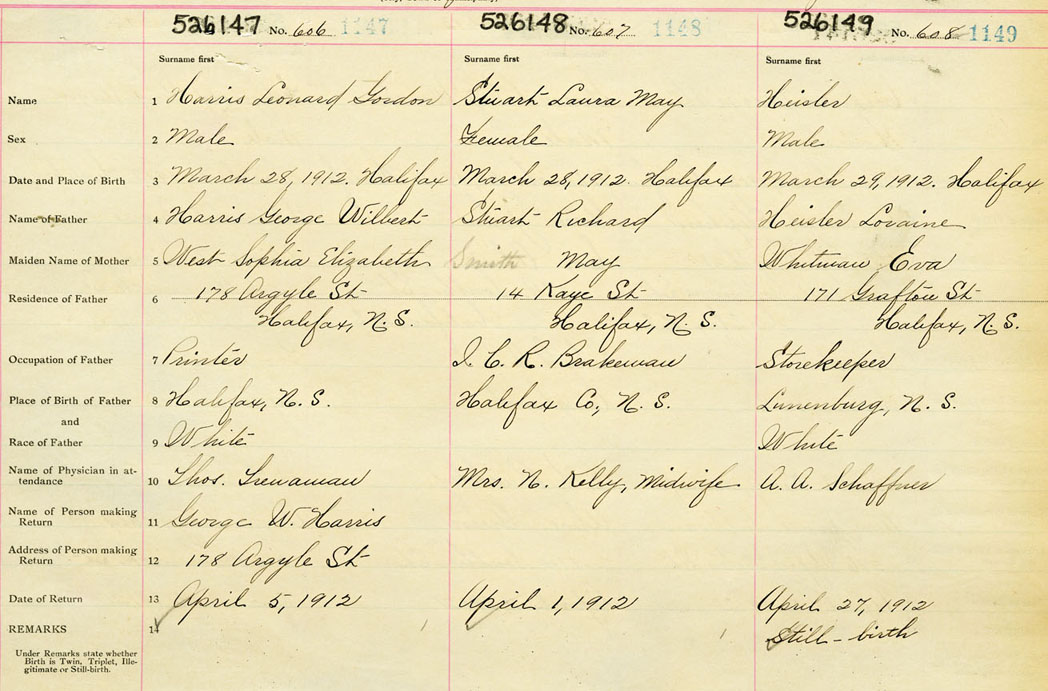 526147 No. 606 1147 526148 No. 607 1148 526149 No. 608 1149
Surname first Surname first Surname first
Name 1 Harris Leonard Gordon Stuart Laura May Heisler
Sex 2 Male Female Male
Date and Place of Birth 3 March 28, 1912. Halifax March 28, 1912. Halifax March 29, 1912. Halifax
Name of Father 4 Harris George Wilbert Stuart Richard Heisler Loraine
Maiden Name of Mother 5 West Sophia Elizabeth Smith May Whitman Eva
Residence of Father 6 178 Argyle St 14 Kaye St 171 Grafton St
Halifax, N. S. Halifax, N. S. Halifax, N. S.
Occupation of Father 7 Printer I. C. R. Brakeman Storekeeper
Place of Birth of Father 8 Halifax, N. S. Halifax Co, N. S. Lunenburg, N. S.
and
Race of Father 9 White White
Name of Physician in at-
tendance 10 Thos. Trenaman Mrs. N. Kelly, Midwife A. A. Schaffner
Name of Person making
Return 11 George W. Harris
Address of Person making
Return 12 178 Argyle St
Date of Return 13 April 5, 1912 April 1, 1912 April 27, 1912
REMARKS 14 Still-birth
Under Remarks state whether
Birth is Twin, Triplet, Ille-
gitimate or Still-birth.